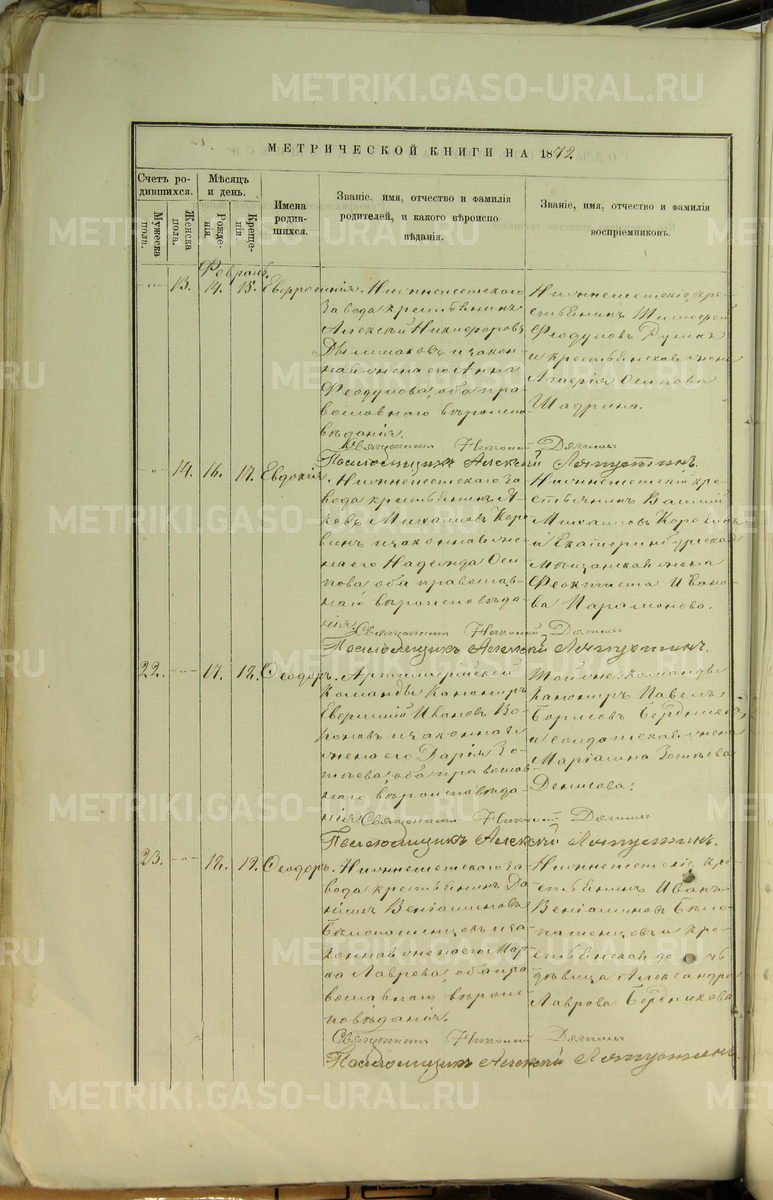 МЕТРИЧЕСКОЙ КНИГИ НА 1872
Счетъ ро-
дившихся.
Мужеска
пола.
Женска
пола.
Мѣсяцъ
и день.
Рожде-
нія.
Креще-
нія.
Имена
родив-
шихся.
Званіе, имя, отчество и фамилія
родителей, и какого вѣроиспо-
вѣданія.
Званіе, имя, отчество и фамилія
воспріемниковъ.
13. 14. 15.
Нижнеисетскаго
завода крестьянинъ
Алексѣй Никифоровъ
и закон-
ная жена его Анна
Феодулова, оба пра-
вославнаго вѣроиспо-
вѣданія.
Нижнеисетскіе кре-
стьянинъ Тимофей
Феодуловъ
и крестьянская жена
Осипова
Шадрина.
Священникъ Николай
Псаломщикъ Алексѣй
14. 16. 17. Евдокія.
Нижнеисетскаго за-
вода крестьянинъ Я-
ковъ Михаиловъ Коро-
винъ и законная же-
на его Надежда Оси-
пова, оба православ-
наго вѣроисповѣда-
нія.
Нижнеисетскій кре-
стьянинъ
Михаиловъ Коровинъ
и Екатеринбургская
мѣщанская жена
Феоктиста Ивано-
ва Парамонова.
Священникъ Николай
Псаломщикъ Алексѣй
22. 17. 18. Ѳеодоръ.
Артиллерійской
команды канониръ
Ивановъ Во-
роновъ и законная
жена его Дарія Зо-
тѣева, оба православ-
наго вѣроисповѣда-
нія.
Той же команды
канониръ Павелъ
Борисовъ Бердниковъ
и солдатская жена
Маріанна Зотѣева
Денисова.
Священникъ Николай
Псаломщикъ Алексѣй
23. 18. 19. Ѳеодоръ.
Нижнеисетскаго за-
вода крестьянинъ Да-
ніилъ Веніаминовъ
Бѣлопашенцовъ и за-
конная жена его Мар-
ѳа Лаврова, оба пра-
вославнаго вѣроис-
повѣданія.
Нижнеисетскіе кре-
стьянинъ Иванъ
Веніаминовъ Бѣло-
пашенцовъ и кре-
стьянская дочь
дѣвица Александра
Лаврова Бердникова
Священникъ Николай
Псаломщикъ Алексѣй
METRIKI.GASO-URAL.RU